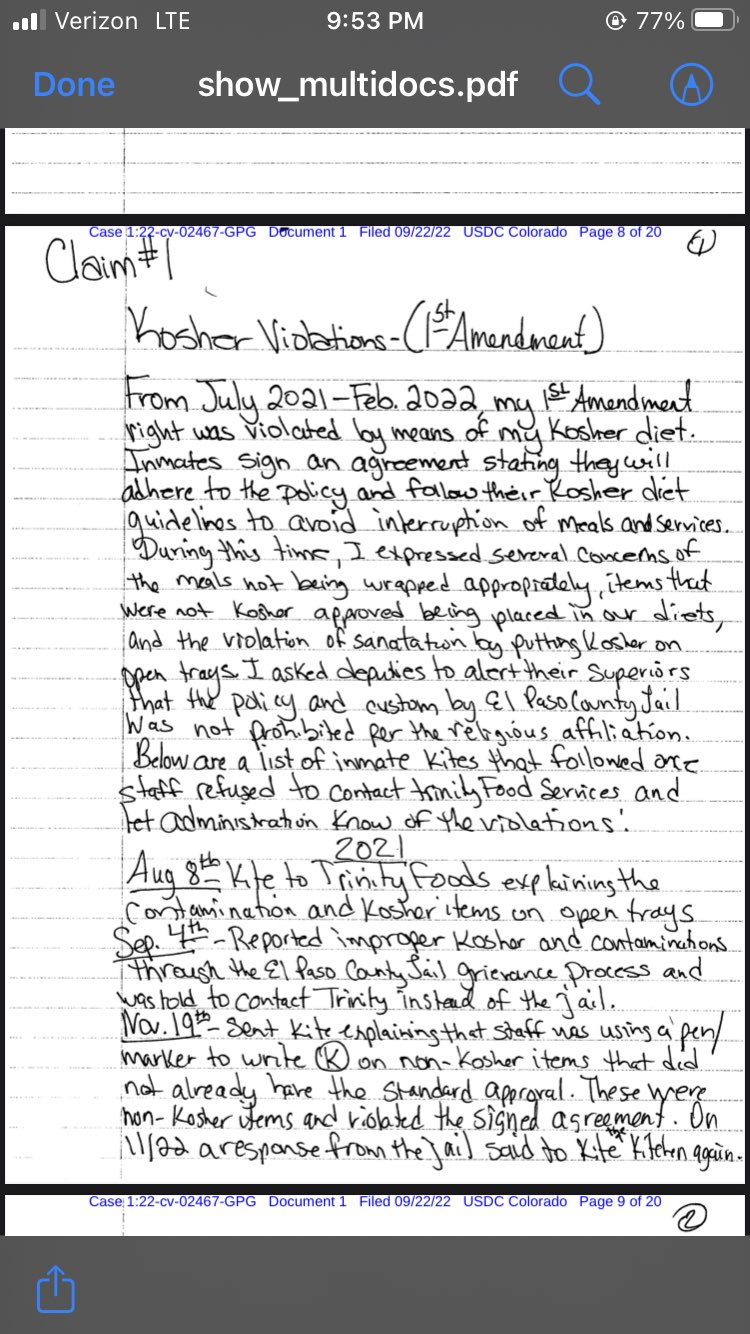 Verizon LTE 9:53 PM 77%
Done show_multidocs.pdf
Case 1:22-cv-02467-GPG Document 1 Filed 09/22/22 USDC Colorado Page 8 of 20
①
Claim #1
Kosher Violations-(1st Amendment)
From July 2021-Feb. 2022, my 1st Amendment
right was violated by means of my Kosher diet.
Inmates sign an agreement stating they will
adhere to the policy and follow their Kosher diet
guidelines to avoid interruption of meals and services.
During this time, I expressed several concerns of
the meals not being wrapped appropriately, items that
were not Kosher approved being placed in our diets,
and the violation of sanatation by putting Kosher on
open trays. I asked deputies to alert their superiors
that the policy and custom by El Paso County Jail
was not prohibited per the religious affiliation.
Below are a list of inmate kites that followed
staff refused to contact trinity Food Services and
let administration know of the violations:
2021
Aug 8th Kite to Trinity Foods explaining the
contamination and Kosher items on open trays
Sep. 4th - Reported improper Kosher and contaminations
through the El Paso County Jail grievance process and
was told to contact Trinity instead of the jail.
Nov. 19th - Sent Kite explaining that staff was using a pen/
marker to write Ⓚ on non-Kosher items that did
not already have the standard approval. These were
non-Kosher items and violated the signed agreement. On
11/22 a response from the jail said to Kite the Kitchen again.
Case 1:22-cv-02467-GPG Document 1 Filed 09/22/22 USDC Colorado Page 9 of 20
②